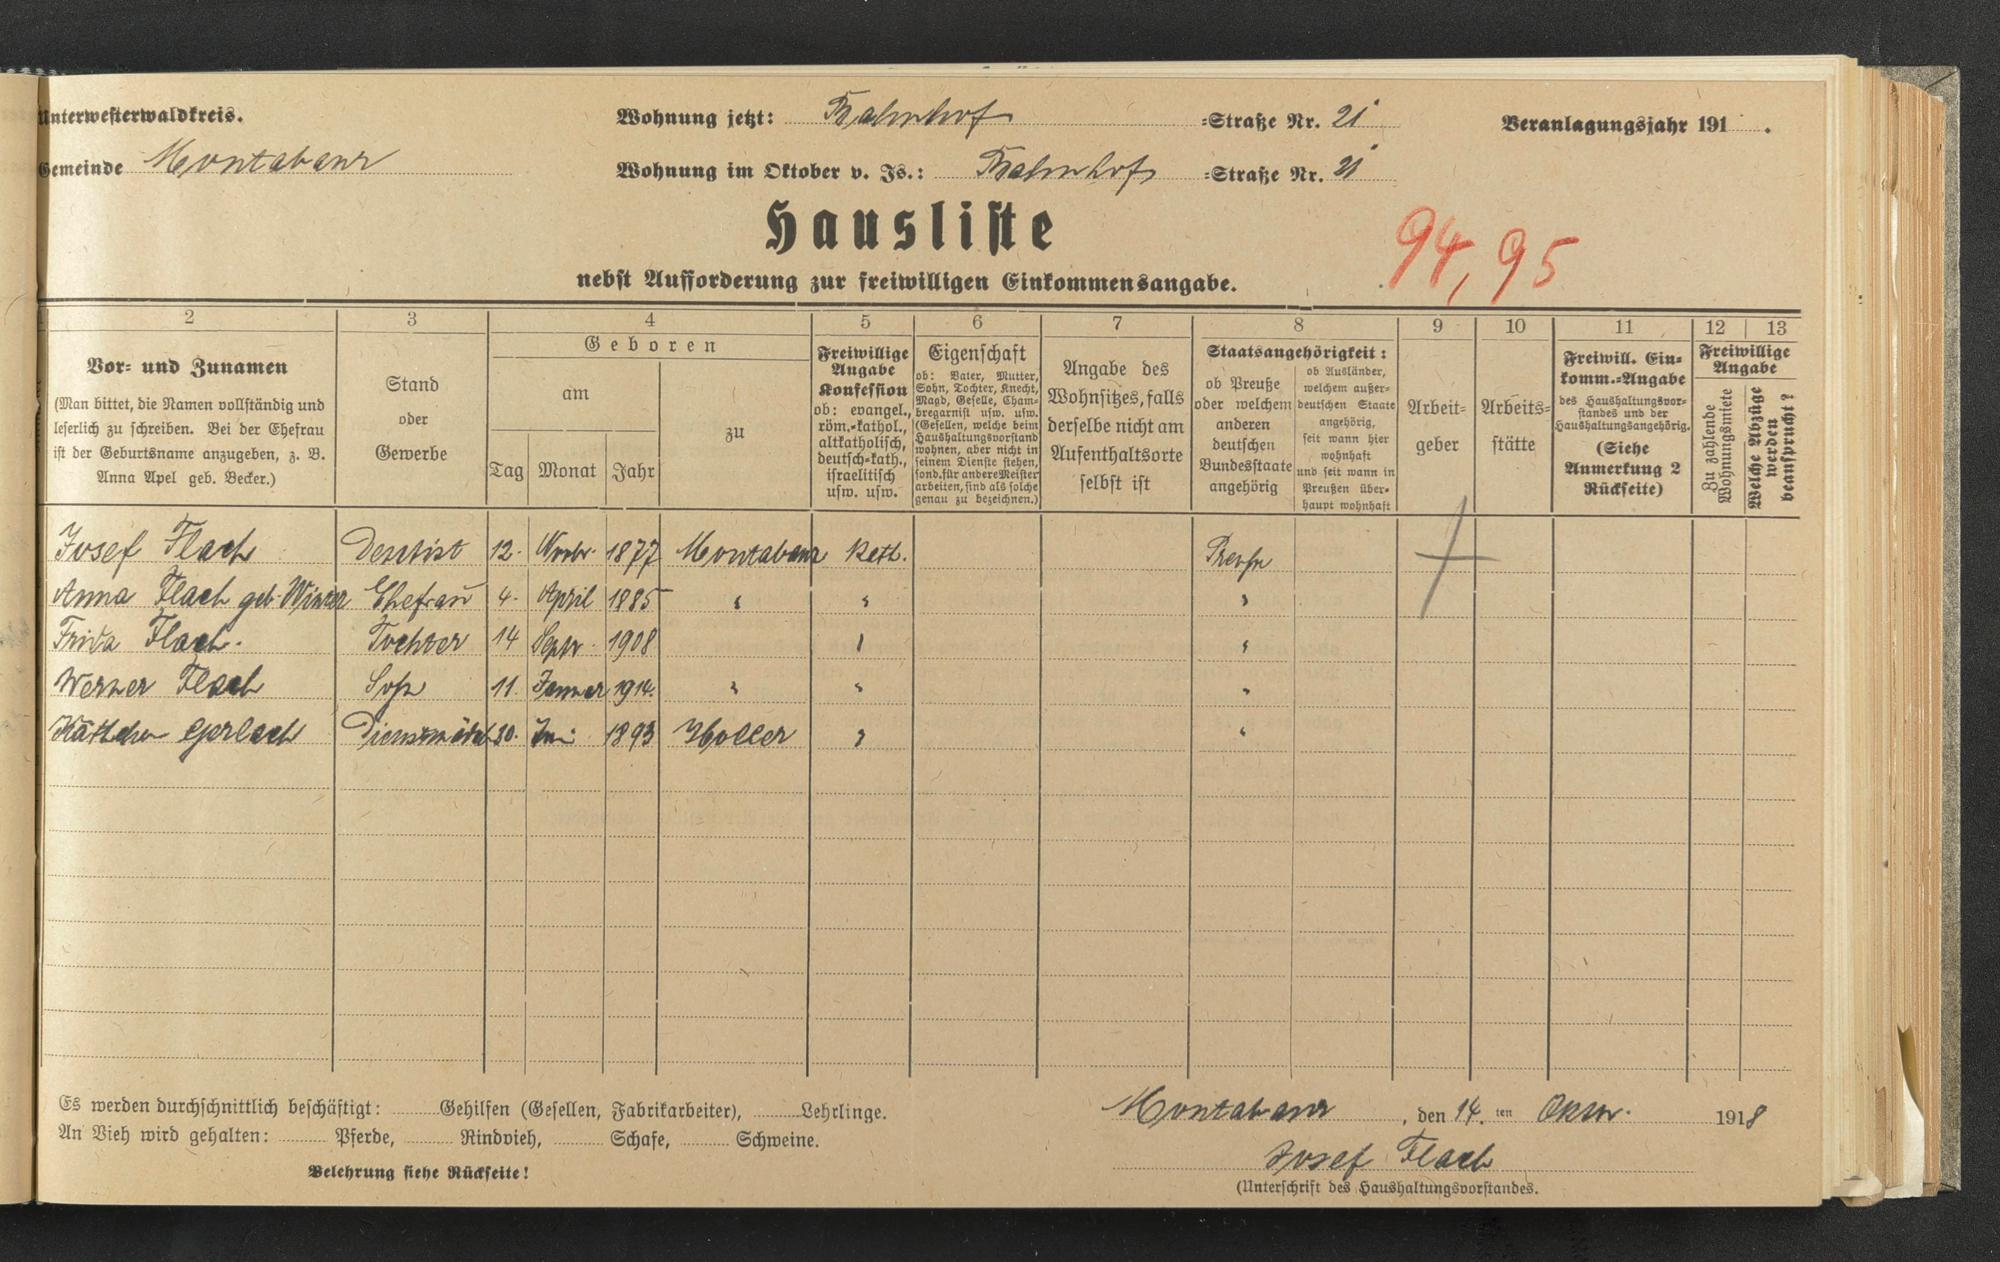 Unterwesterwaldkreis.
Gemeinde Montabaur
Wohnung jetzt: Bahnhof =Straße Nr. 21
Wohnung im Oktober v. Js.: Bahnhof =Straße Nr. 21
Veranlagungsjahr 191 .
Hausliste
94, 95
nebst Aufforderung zur freiwilligen Einkommensangabe.
2 3 4 5 6 7 8 9 10 11 12 13
Vor= und Zunamen
(Man bittet, die Namen vollständig und
leserlich zu schreiben. Bei der Ehefrau
ist der Geburtsname anzugeben, z. B.
Anna Apel geb. Becker.)
Stand
oder
Gewerbe
Geboren
am
Tag Monat Jahr
zu
Freiwillige
Angabe
Konfession
ob: evangel.,
röm.=kathol.,
altkatholisch,
deutsch=kath.,
israelitisch
usw. usw.
Eigenschaft
ob: Vater, Mutter,
Sohn, Tochter, Knecht,
Magd, Geselle, Cham=
bregarnist usw. usw.
(Gesellen, welche beim
Haushaltungsvorstand
wohnen, aber nicht in
seinem Dienste stehen,
sond. für andere Meister
arbeiten, sind als solche
genau zu bezeichnen.)
Angabe des
Wohnsitzes, falls
derselbe nicht am
Aufenthaltsorte
selbst ist
Staatsangehörigkeit:
ob Preuße
oder welchem
anderen
deutschen
Bundesstaate
angehörig
ob Ausländer,
welchem außer=
deutschen Staate
angehörig,
seit wann hier
wohnhaft
und seit wann in
Preußen über=
haupt wohnhaft
Arbeit=
geber
Arbeits=
stätte
Freiwill. Ein=
komm.=Angabe
des Haushaltungsvor=
standes und der
Haushaltungsangehörig.
(Siehe
Anmerkung 2
Rückseite)
Freiwillige
Angabe
Zu zahlende
Wohnungsmiete
Welche Abzüge
werden
beansprucht?
Josef Flach Dentist 12. Novbr. 1877 Montabaur Kath. Preuße
Anna Flach geb. Winter Ehefrau 4. April 1885 " " "
Frida Flach. Tochter 14 Septr. 1908 " "
Werner Flach Sohn 11. Januar 1914. " " "
Käthchen Gerlach Dienstmädch 30. Juni 1893 Holler " "
Es werden durchschnittlich beschäftigt: Gehilfen (Gesellen, Fabrikarbeiter), Lehrlinge.
An Vieh wird gehalten: Pferde, Rindvieh, Schafe, Schweine.
Belehrung siehe Rückseite!
Montabaur, den 14. ten Oktbr. 1918
Josef Flach
(Unterschrift des Haushaltungsvorstandes.